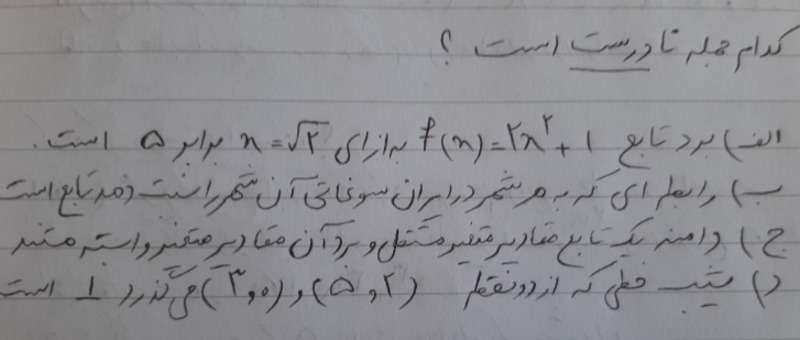 کدام جمله نادرست است ؟
الف) برد تابع f(x)=۲x^۲+1 به ازای x=√۲ برابر ۵ است.
ب) رابطه ای که به هر شهر در ایران سوغاتی آن شهر را نسبت دهد تابع است
ج) دامنه یک تابع مقادیر متغیر مستقل و برد آن مقادیر متغیر وابسته هستند
د) شیب خطی که از دو نقطه (۵,۲) و (۳,۰) می گذرد 1 است